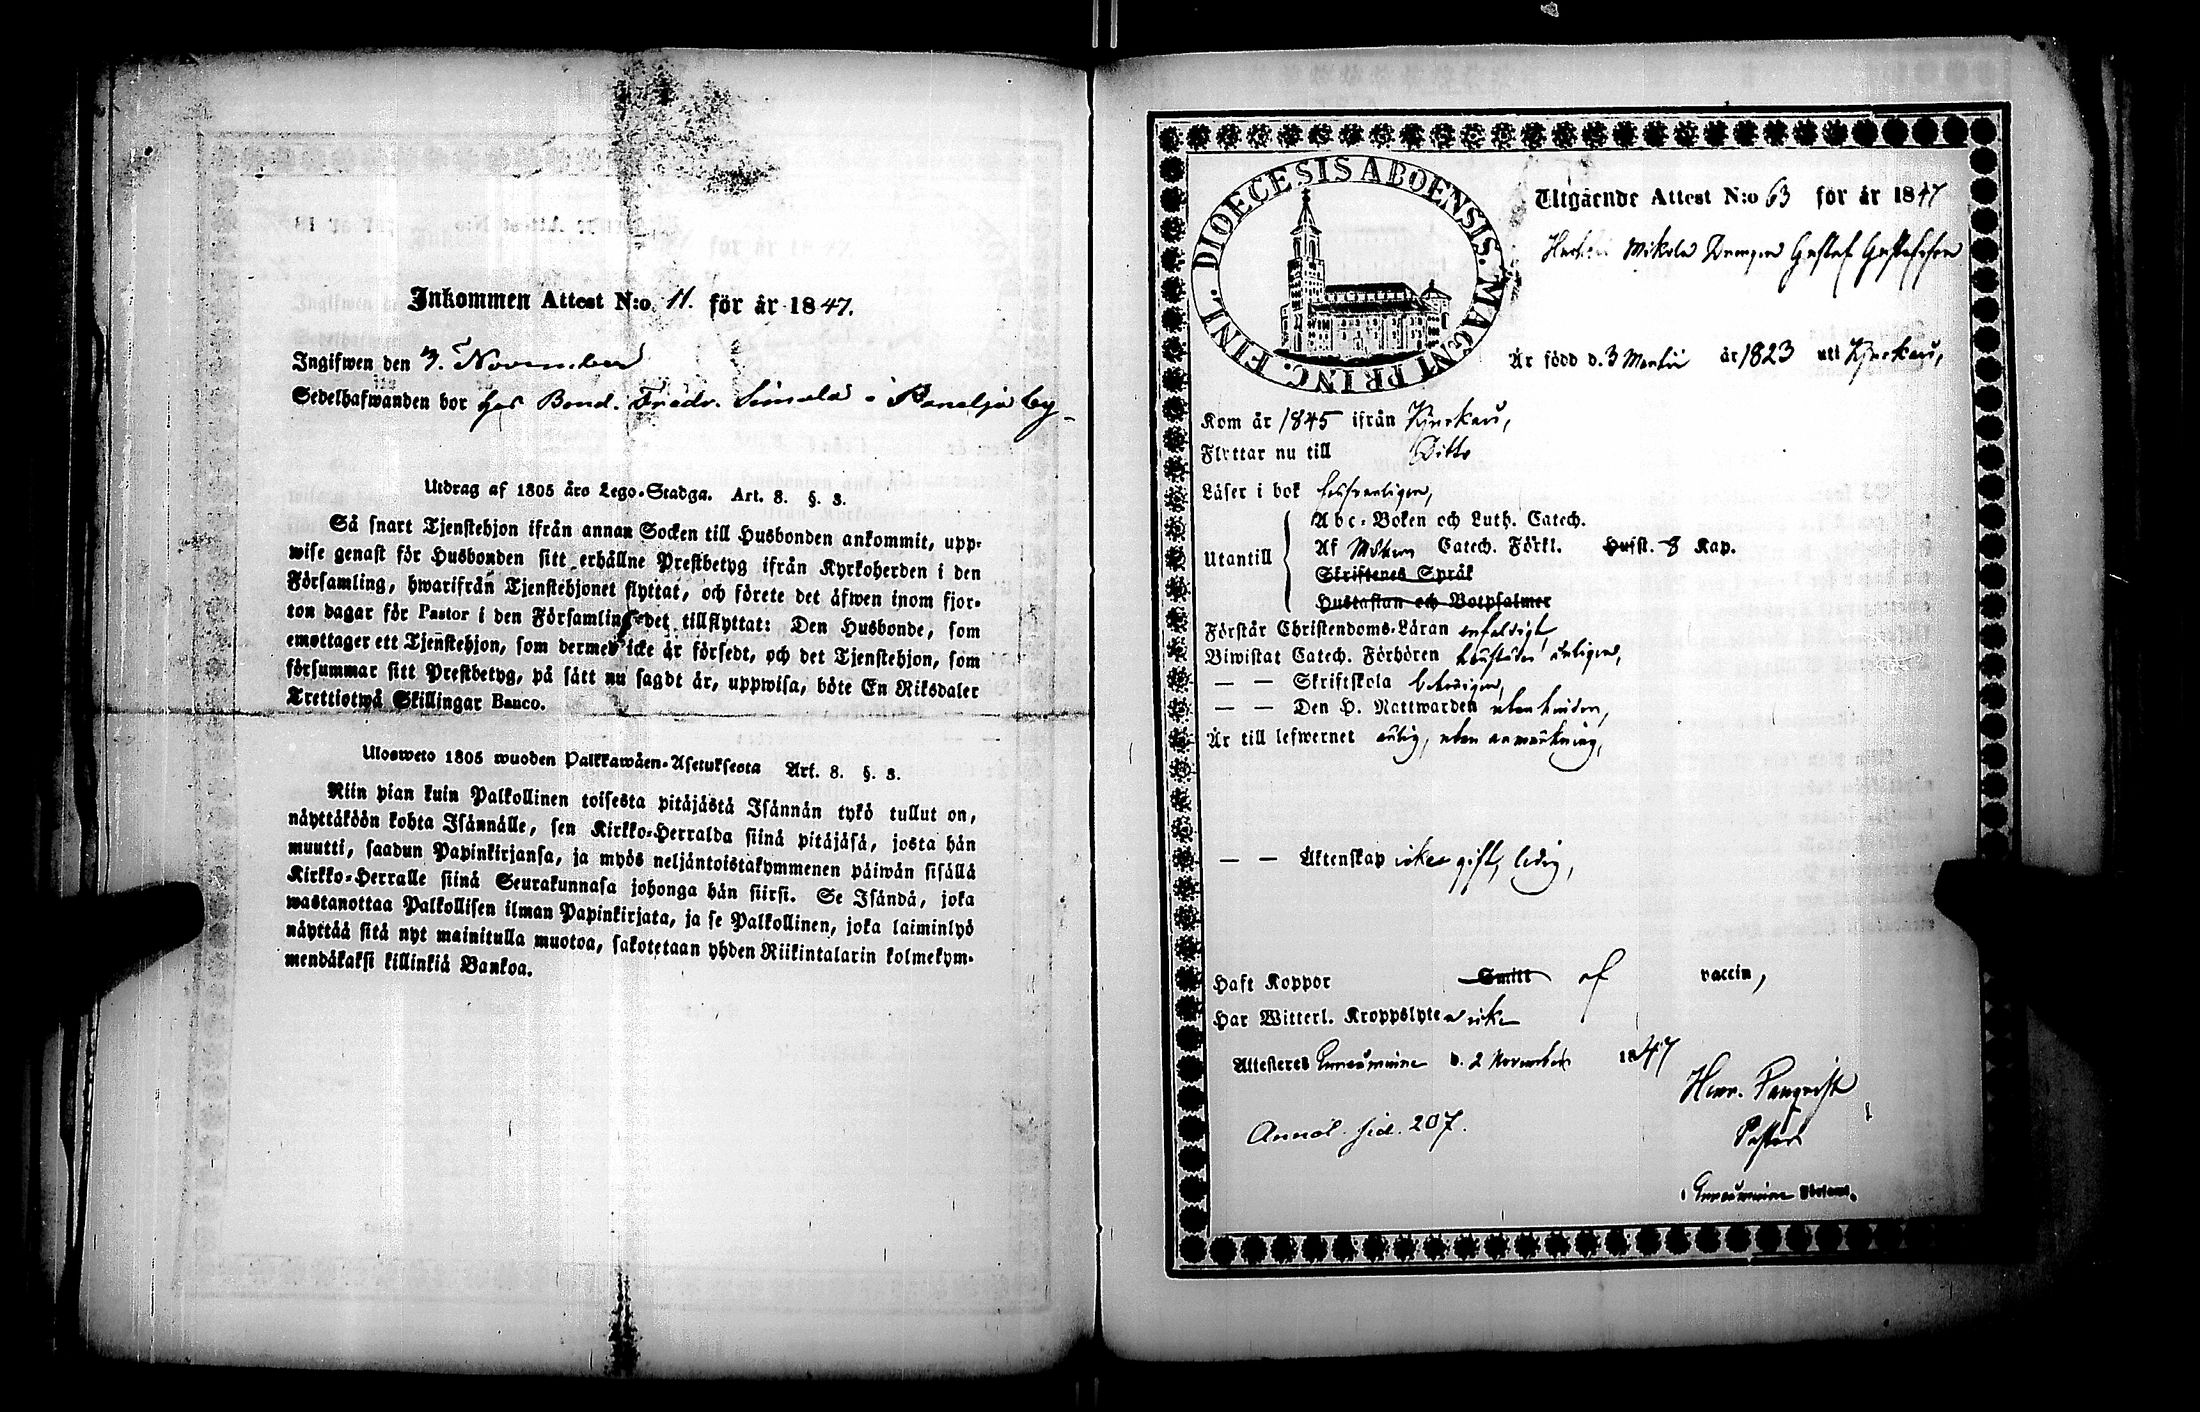 Inkommen Attest N:o 11. för år 1847.
Ingifwen den 3. November
Sedelhafwanden bor hos Bond. Fredr. Simola i Paneljа by
Utdrag af 1805 års Lego-Stadga. Art. 8. §. 3.
Så snart Tjenstehjon ifrån annan Socken till Husbonden ankommit, upp-
wise genast för Husbonden sitt erhållne Prestbetyg ifrån Kyrkoherden i den
Församling, hwarifrån Tjenstehjonet flyttat, och förete det äfwen inom fjor-
ton dagar för Pastor i den Församling det tillflyttat: Den Husbonde, som
emottager ett Tjenstehjon, som dermed icke är försedt, och det Tjenstehjon, som
försummar sitt Prestbetyg, på sätt nu sagdt är, uppwisa, böte En Riksdaler
Trettiotwå Skillingar Banco.
Ulosweto 1805 wuoden Palkkawäen-Asetuksesta Art. 8. §. 3.
Niin pian kuin Palkollinen toisesta pitäjästä Isännän tykö tullut on,
näyttäköön kohta Isännälle, sen Kirkko-Herralda siinä pitäjäsä, josta hän
muutti, saadun Papinkirjansa, ja myös neljäntoistakymmenen päiwän sisällä
Kirkko-Herralle siinä Seurakunnasa johonga hän siirsi. Se Isändä, joka
wastanottaa Palkollisen ilman Papinkirjata, ja se Palkollinen, joka laiminlyö
näyttää sitä nyt mainitulla muotoa, sakotetaan yhden Riikintalarin kolmekym-
mendäkaksi killinkiä Bankoa.
FINL. DIOECESIS ABOENSIS. MAGNI PRINC.
Utgående Attest N:o 63 för år 1847
Mikola Drengen Gustaf Gustafsson
Är född d. 3 Martii år 1823 uti Kjurkais,
Kom år 1845 ifrån Kjurkais,
Flyttar nu till Ditto
Läser i bok
Abc-Boken och Luth. Catech.
Utantill Af Catech. Förkl. Husst. 8 Kap.
Skriftenes Språk
Hustaflan och Botpsalmer
Förstår Christendoms-Läran enfaldigt
Biwistat Catech. Förhören årligen,
— — Skriftskola behörigen,
— — Den H. Nattwarden utan hinder,
Är till lefwernet ärlig, utan anmärkning,
— — Äktenskap icke gift, ledig,
Haft Koppor Smitt af vaccin,
Har Witterl. Kroppslyte icke
Attesteres d. 2 November 1847
Henr.
Pastor
Annot. sid. 207.
i Församl.